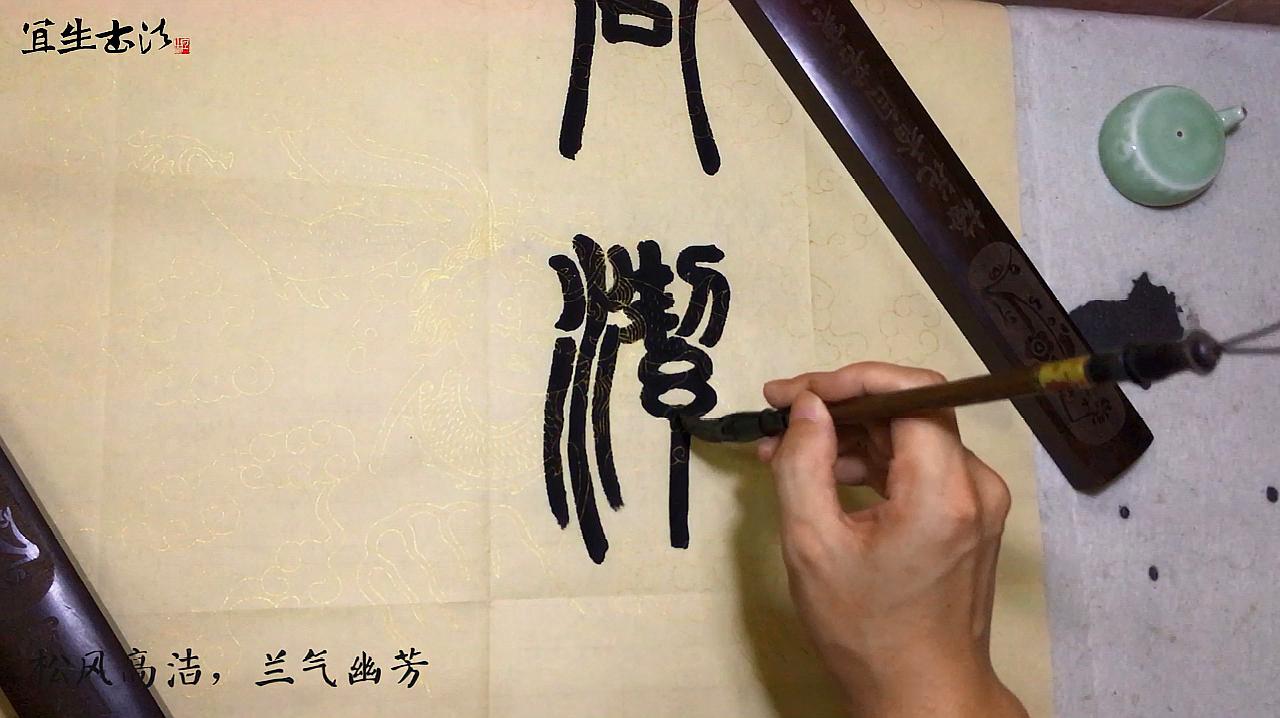 宜生书法
高
潔
松风高洁，兰气幽芳